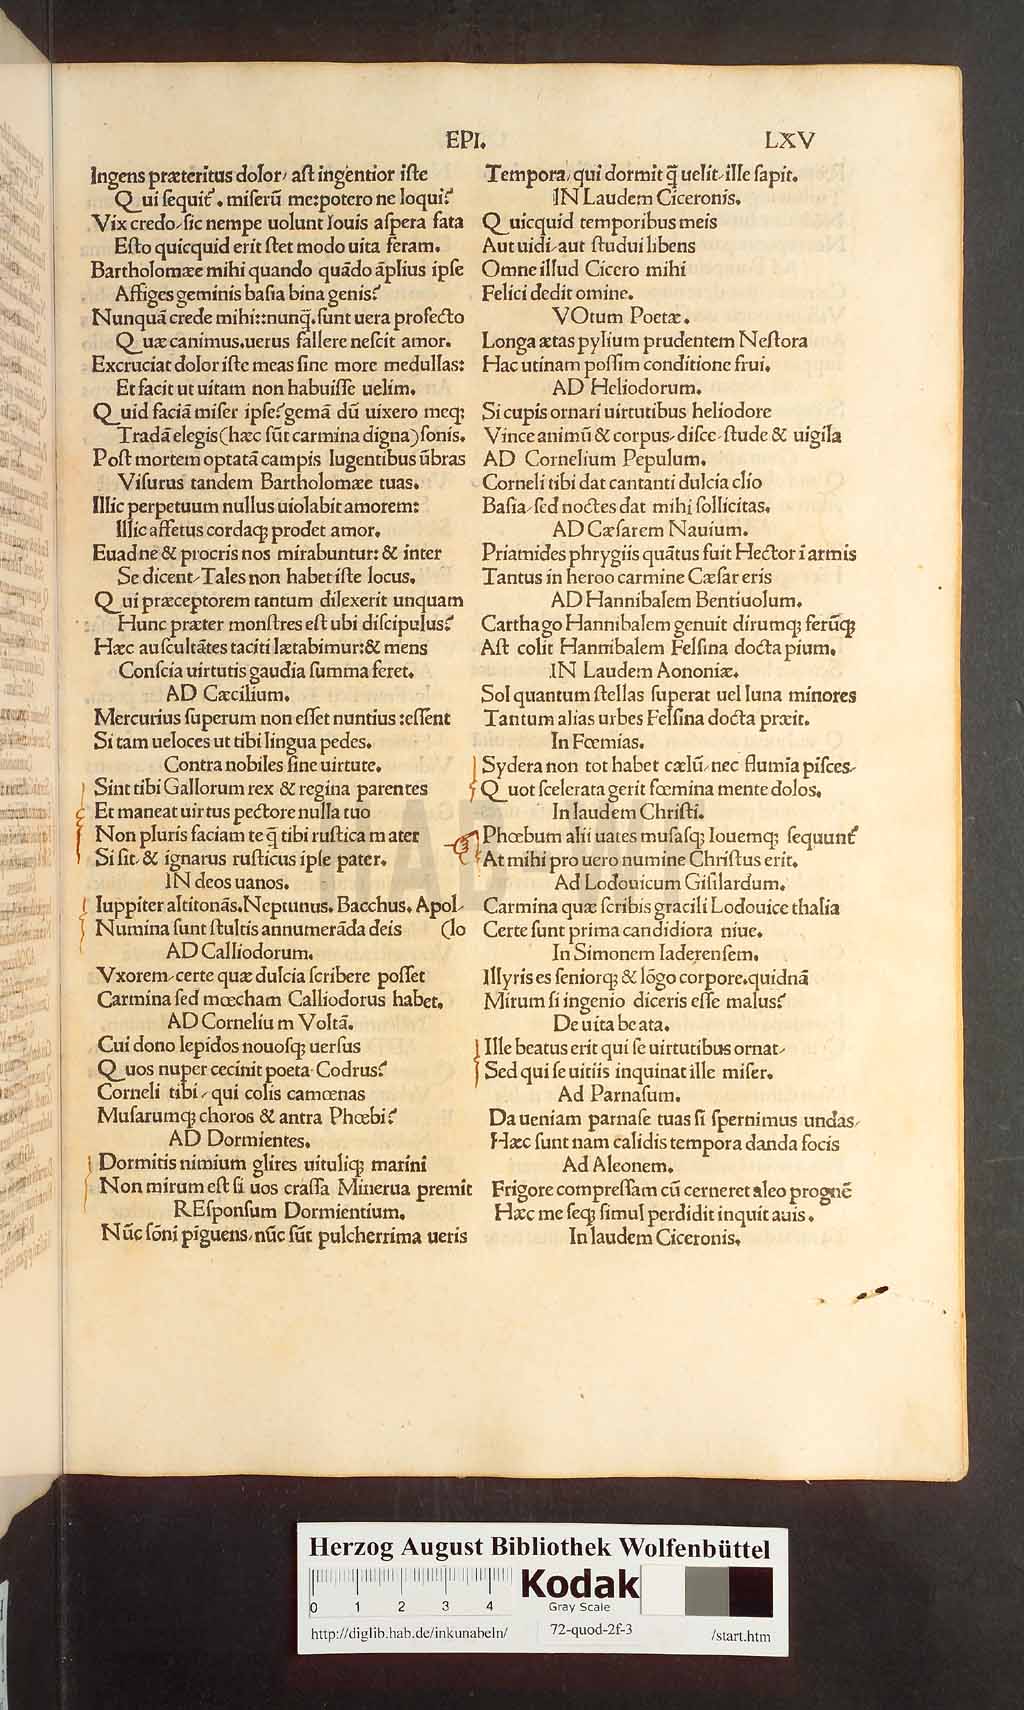 EPI. LXV
Ingens præteritus dolor, ast ingentior iste
Qui sequit᷒. miserū me: potero ne loqui?
Vix credo, sic nempe uolunt Iouis aspera fata
Esto quicquid erit stet modo uita feram.
Bartholomæe mihi quando quādo āplius ipse
Affiges geminis basia bina genis?
Nunquā crede mihi:: nunq̄. sunt uera profecto
Quæ canimus. uerus fallere nescit amor.
Excruciat dolor iste meas sine more medullas:
Et facit ut uitam non habuisse uelim.
Quid faciā miser ipse? gemā dū uixero meq;
Tradā elegis (hæc sūt carmina digna) sonis.
Post mortem optatā campis lugentibus ūbras
Visurus tandem Bartholomæe tuas.
Illic perpetuum nullus uiolabit amorem:
Illic affetus cordaq; prodet amor.
Euadne & procris nos mirabuntur: & inter
Se dicent, Tales non habet iste locus.
Qui præceptorem tantum dilexerit unquam
Hunc præter monstres est ubi discipulus?
Hæc auscultātes taciti lætabimur: & mens
Conscia uirtutis gaudia summa feret.
AD Cæcilium.
Mercurius superum non esset nuntius: essent
Si tam ueloces ut tibi lingua pedes.
Contra nobiles sine uirtute.
Sint tibi Gallorum rex & regina parentes
Et maneat uirtus pectore nulla tuo
Non pluris faciam te q̄ tibi rustica mater
Si sit, & ignarus rusticus ipse pater.
IN deos uanos.
Iuppiter altitonās. Neptunus. Bacchus. Apol-
Numina sunt stultis annumerāda deis (lo
AD Calliodorum.
Vxorem, certe quæ dulcia scribere posset
Carmina sed mœcham Calliodorus habet.
AD Cornelium Voltā.
Cui dono lepidos nouosq; uersus
Quos nuper cecinit poeta Codrus?
Corneli tibi, qui colis camœnas
Musarumq; choros & antra Phœbi?
AD Dormientes.
Dormitis nimium glires uituliq; marini
Non mirum est si uos crassa Minerua premit
REsponsum Dormientium.
Nūc sōni pīguens, nūc sūt pulcherrima ueris
Tempora, qui dormit q̄ uelit, ille sapit.
IN Laudem Ciceronis.
Quicquid temporibus meis
Aut uidi, aut studui libens
Omne illud Cicero mihi
Felici dedit omine.
VOtum Poetæ.
Longa ætas pylium prudentem Nestora
Hac utinam possim conditione frui.
AD Heliodorum.
Si cupis ornari uirtutibus heliodore
Vince animū & corpus, disce, stude & uigila
AD Cornelium Pepulum.
Corneli tibi dat cantanti dulcia clio
Basia, sed noctes dat mihi sollicitas.
AD Cæsarem Nauium.
Priamides phrygiis quātus fuit Hector ī armis
Tantus in heroo carmine Cæsar eris
AD Hannibalem Bentiuolum.
Carthago Hannibalem genuit dirumq; ferūq;
Ast colit Hannibalem Felsina docta pium.
IN Laudem Aononiæ.
Sol quantum stellas superat uel luna minores
Tantum alias urbes Felsina docta præit.
In Fœmias.
Sydera non tot habet cælū, nec flumia pisces,
Quot scelerata gerit fœmina mente dolos.
In laudem Christi.
Phœbum alii uates musasq; Iouemq; sequunt᷒
At mihi pro uero numine Christus erit.
Ad Lodouicum Gisilardum.
Carmina quæ scribis gracili Lodouice thalia
Certe sunt prima candidiora niue.
In Simonem Iaderensem.
Illyris es seniorq; & lōgo corpore. quidnā
Mirum si ingenio diceris esse malus?
De uita beata.
Ille beatus erit qui se uirtutibus ornat,
Sed qui se uitiis inquinat ille miser.
Ad Parnasum.
Da ueniam parnase tuas si spernimus undas,
Hæc sunt nam calidis tempora danda focis
Ad Aleonem.
Frigore compressam cū cerneret aleo prognē
Hæc me seq; simul perdidit inquit auis.
In laudem Ciceronis.
HAB-WF
Herzog August Bibliothek Wolfenbüttel
0 1 2 3 4
Kodak
Gray Scale
http://diglib.hab.de/inkunabeln/ 72-quod-2f-3 /start.htm